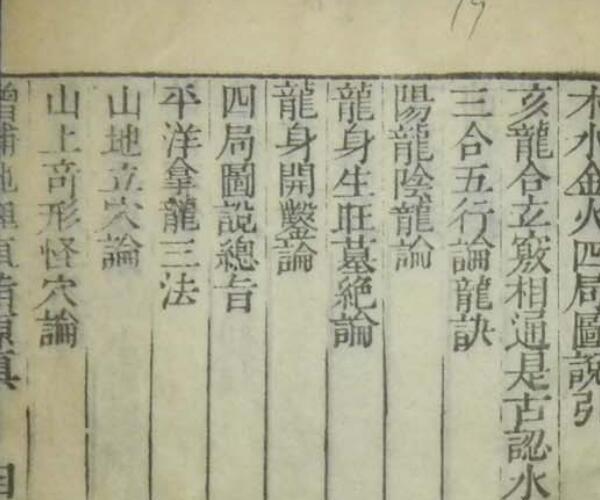 木水金火四局圖說引
亥龍合玄竅相通是古認水
三合五行論龍訣
陽龍陰龍論
龍身生旺墓絕論
龍身開鑿論
四局圖說總旨
平洋拿龍三法
山地立穴論
山上竒形怪穴論
增補地理直指原真 目